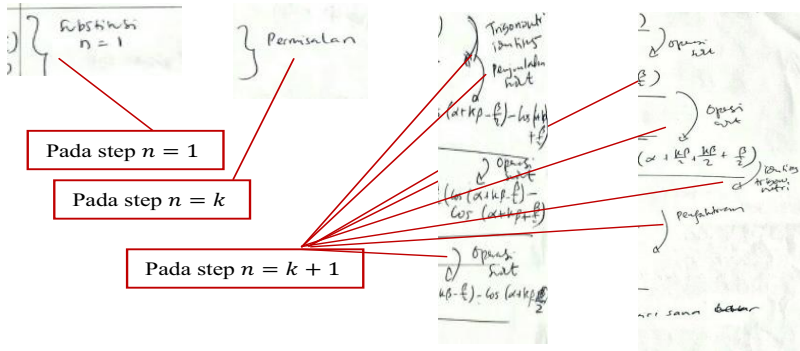 Substitusi
n = 1
Permisalan
Pada step n = 1
Pada step n = k
Pada step n = k + 1
Trigonometri
identitas
Penjumlahan
sudut
(α+kβ-β/2)-cos(α+kβ
+β/2)
Operasi
sudut
(cos(α+kβ-β/2)-
cos(α+kβ+β/2)
Operasi
sudut
kβ-β/2)-cos(α+kβ+β/2
Operasi
sudut
β/2)
Operasi
sudut
(α + kβ/2 + kβ/2 + β/2)
identitas
trigono
metri